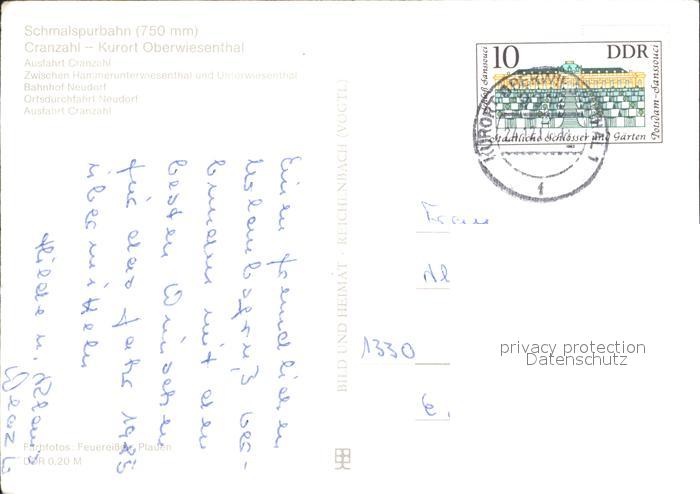 Schmalspurbahn (750 mm)
Cranzahl – Kurort Oberwiesenthal
Ausfahrt Cranzahl
Zwischen Hammerunterwiesenthal und Unterwiesenthal
Bahnhof Neudorf
Ortsdurchfahrt Neudorf
Ausfahrt Cranzahl
Einen freundlichen
Urlaubsgruß ver-
bunden mit den
besten Wünschen
für das Jahr 1985
übermitteln
Hilde u. Klaus
Farbfotos: Feuereißer, Plauen
DDR 0,20 M
BILD UND HEIMAT · REICHENBACH (VOGTL)
10
DDR
Schloß Sanssouci
Potsdam-Sanssouci
Staatliche Schlösser und Gärten
KURORT OBERWIESENTHAL 1
Frau
1330
privacy protection
Datenschutz